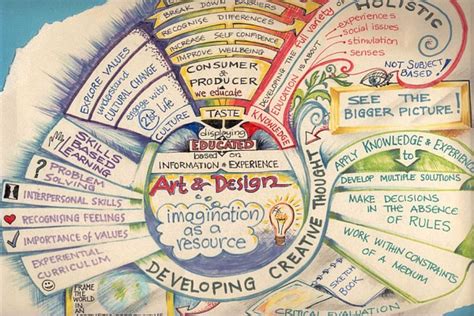 BREAK DOWN BARRIERS
RECOGNISE DIFFERENCES
INCREASE SELF CONFIDENCE
IMPROVE WELLBEING
CONSUMER &
PRODUCER
we educate
TASTE
EXPLORE VALUES
understand
CULTURAL CHANGE
engage with
21st Life
CULTURE
DEVELOPING the Full Variety of
EDUCATION IS ABOUT
KNOWLEDGE
HOLISTIC
experiences
social issues
stimulation
senses
NOT SUBJECT
BASED!
SEE THE
BIGGER PICTURE!
SKILLS
BASED
LEARNING
? PROBLEM
SOLVING
INTERPERSONAL SKILLS
RECOGNISING FEELINGS
IMPORTANCE of VALUES
EXPERIENTIAL
CURRICULUM
FRAME
THE WORLD
IN AN
displaying
EDUCATED
based on
INFORMATION + EXPERIENCE
Art & Design
is
imagination
as a
resource
DEVELOPING CREATIVE THOUGHT
APPLY KNOWLEDGE & EXPERIENCE
to
DEVELOP MULTIPLE SOLUTIONS
MAKE DECISIONS
IN THE ABSENCE
OF RULES
WORK WITHIN CONSTRAINTS
OF A MEDIUM
SKETCH
BOOK
CRITICAL EVALUATION